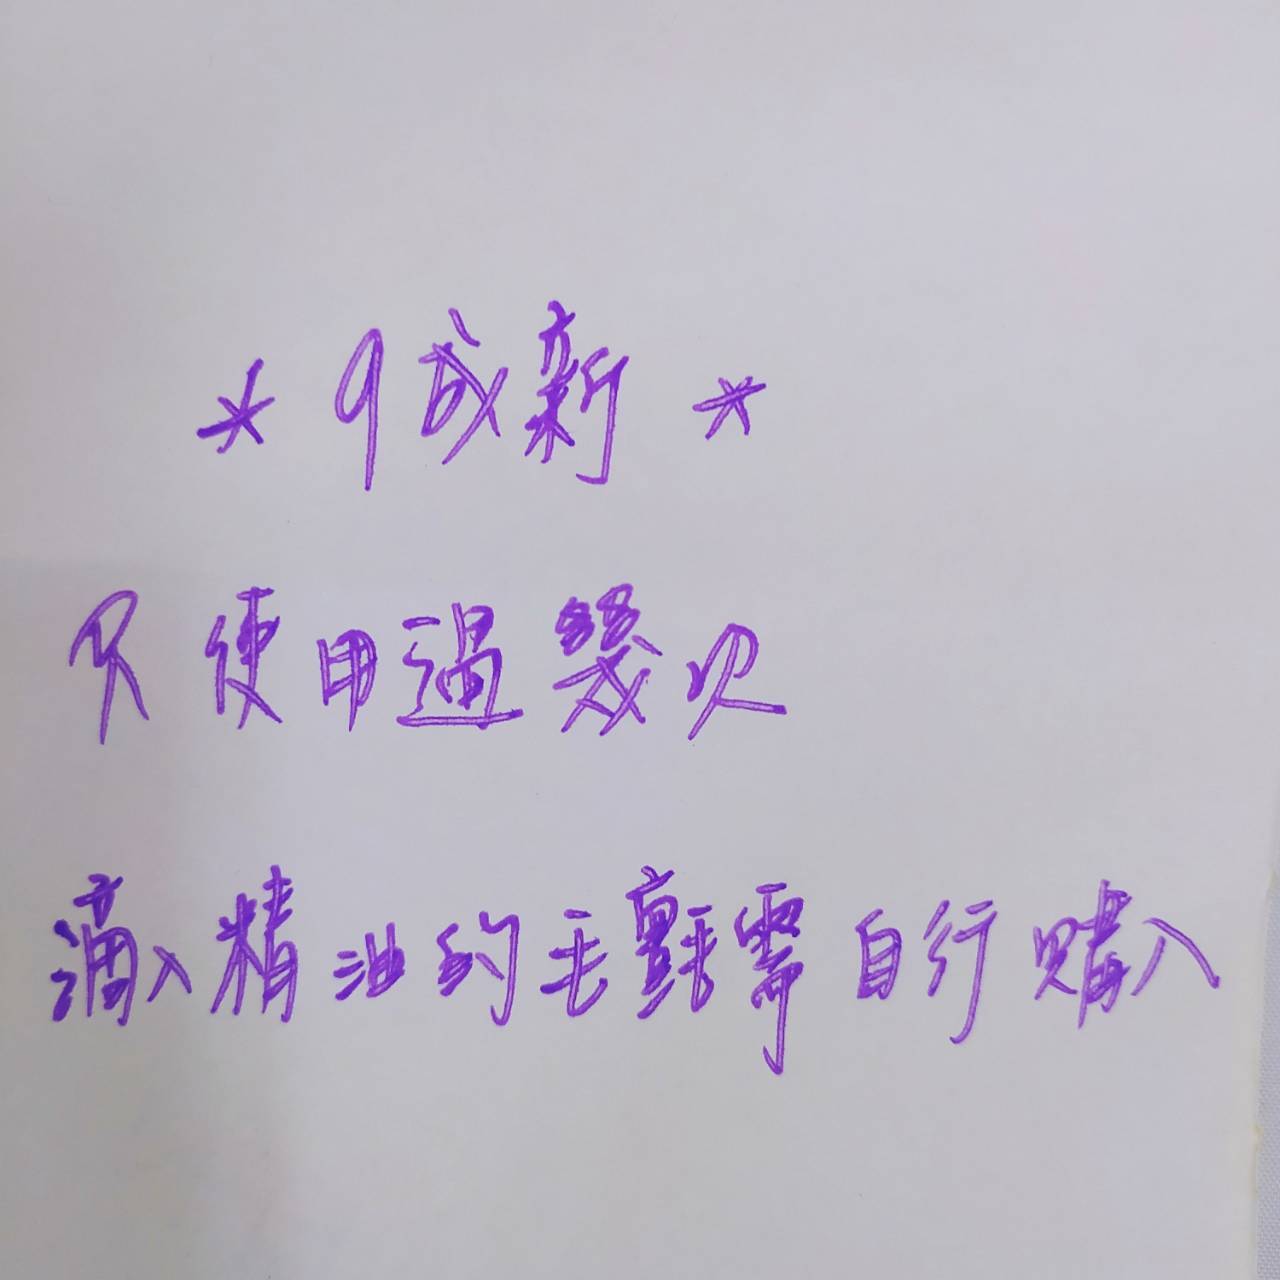 * 9成新 *
只使用過幾次
滴入精油的毛氈需自行購入